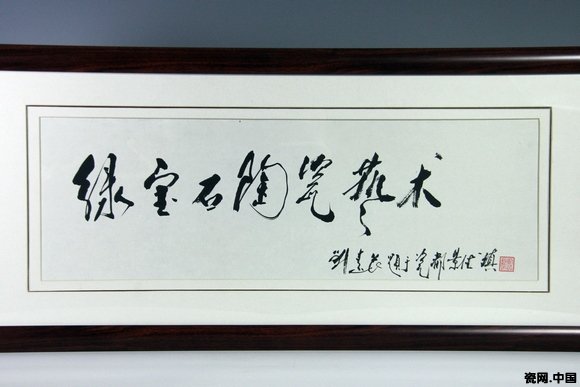 绿宝石陶瓷藝术
劉远长题于瓷都景德镇
瓷网.中国